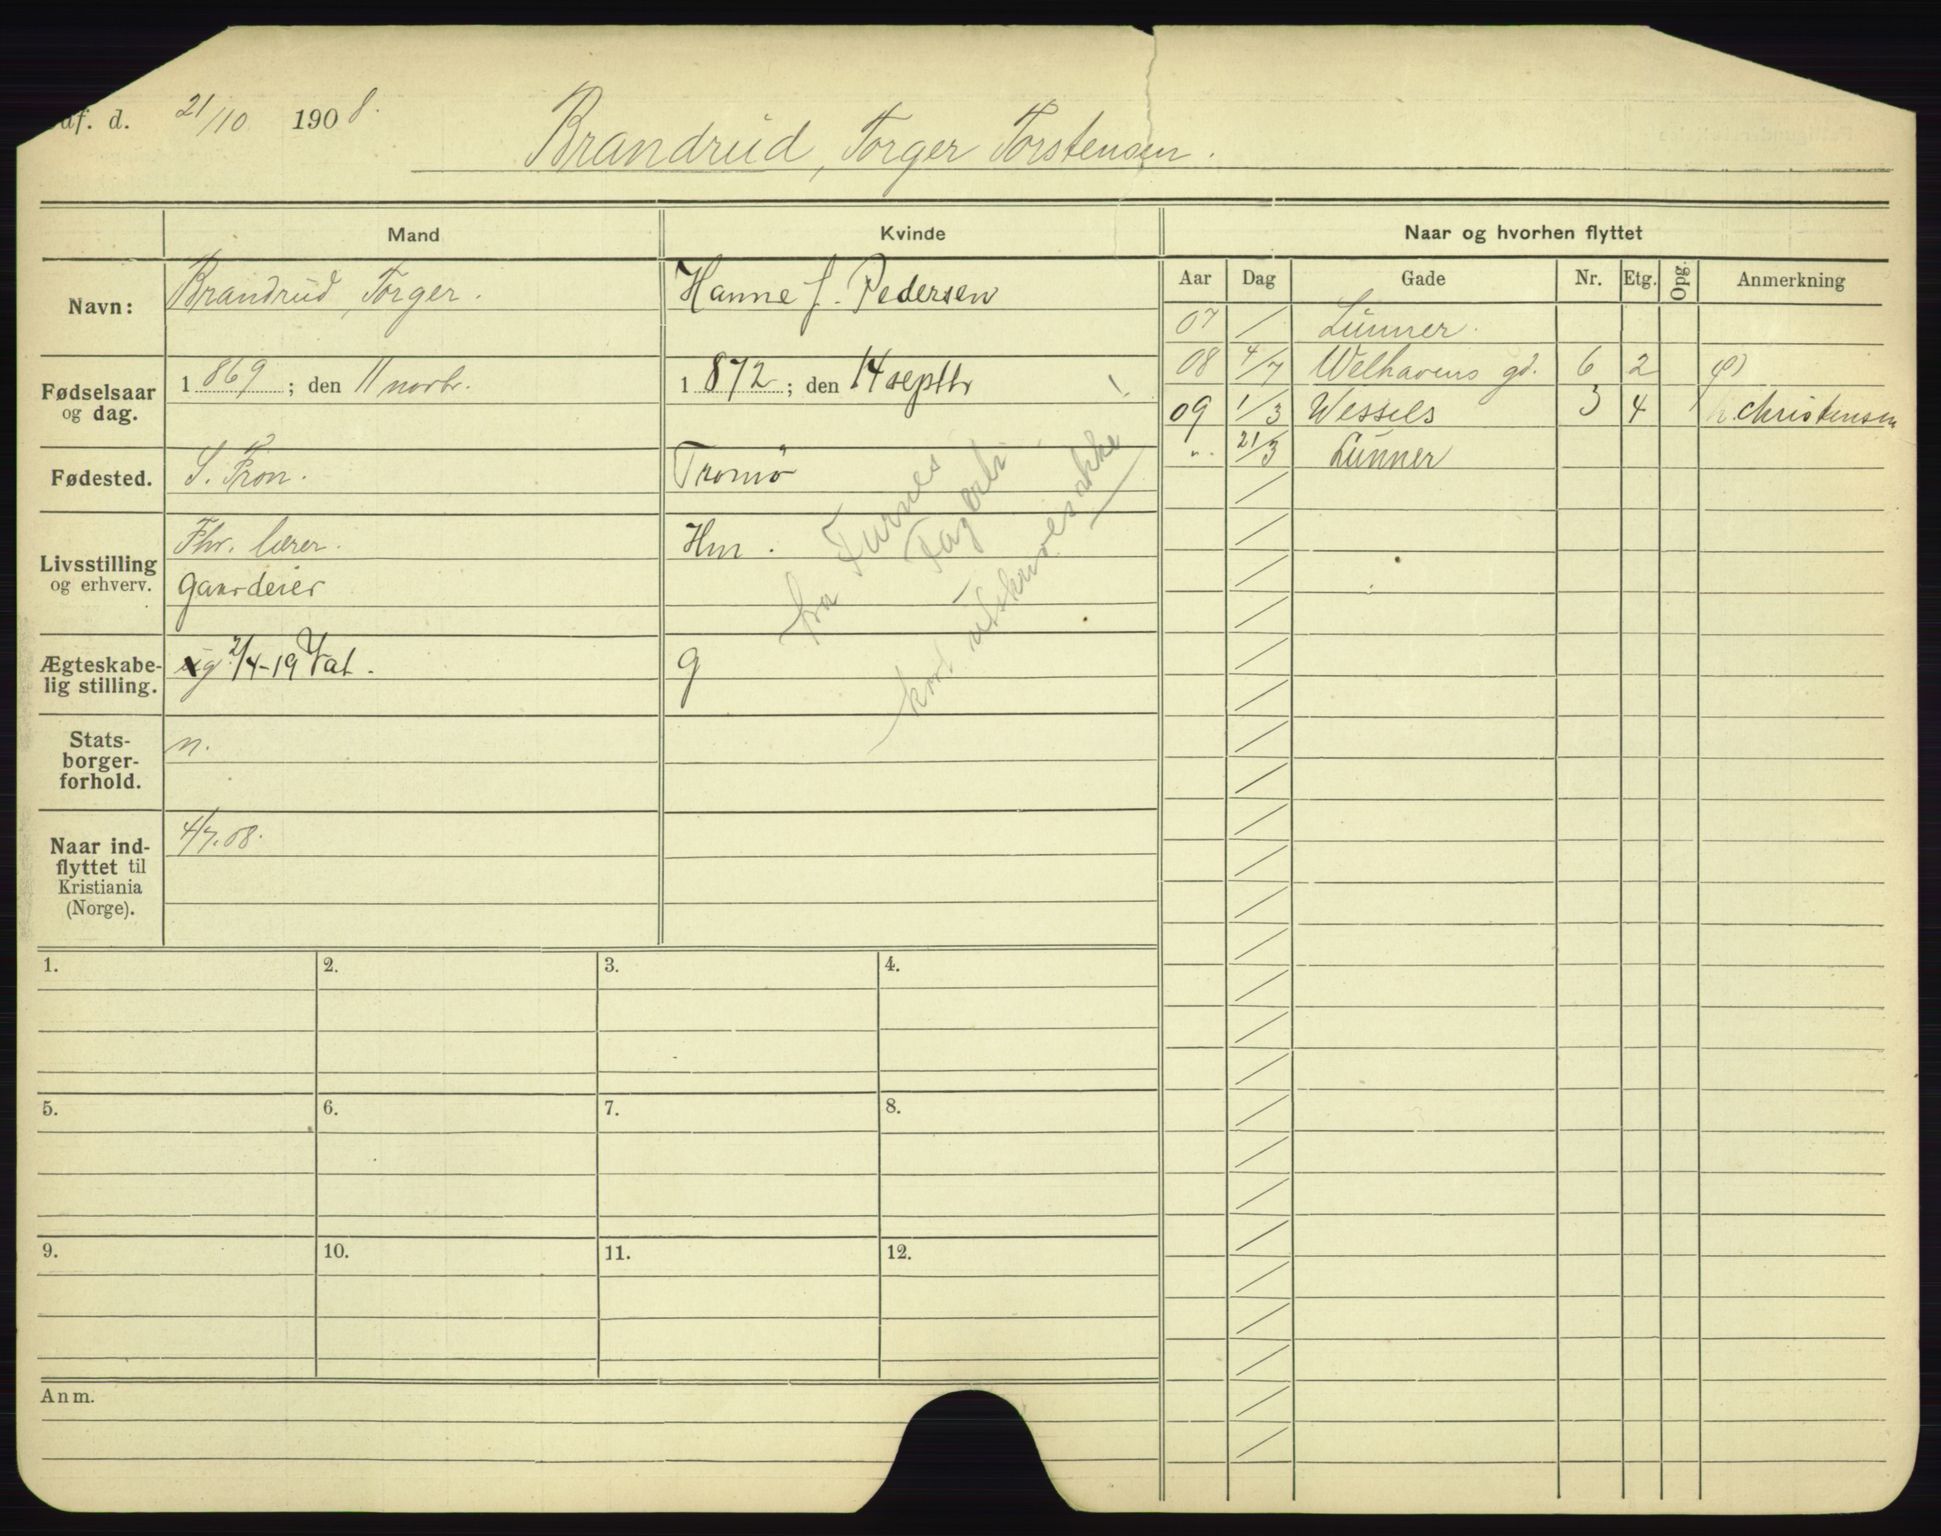 df. d. 21/10 1908.
Brandrud, Torger Torstensen.
Mand Kvinde Naar og hvorhen flyttet
Aar Dag Gade Nr. Etg. Opg. Anmerkning
Navn: Brandrud, Torger. Hanne J. Pedersen
Fødselsaar og dag. 1869; den 11 novbr. 1872; den 14 septbr
Fødested. S. Fron. Tromø
Livsstilling og erhverv. Fhv. lærer. Hm.
Gaardeier
Ægteskabelig stilling. ug 2/4-19 g
Statsborgerforhold. n.
Naar indflyttet til Kristiania (Norge). 4/7.08.
fra Furnes
Fagerli
kort utskrives ikke!
07 / Lunner.
08 4/7 Welhavens gd. 6 2
09 1/3 Wessels 3 4 Christensen
". 21/3 Lunner
1. 2. 3. 4.
5. 6. 7. 8.
9. 10. 11. 12.
Anm.